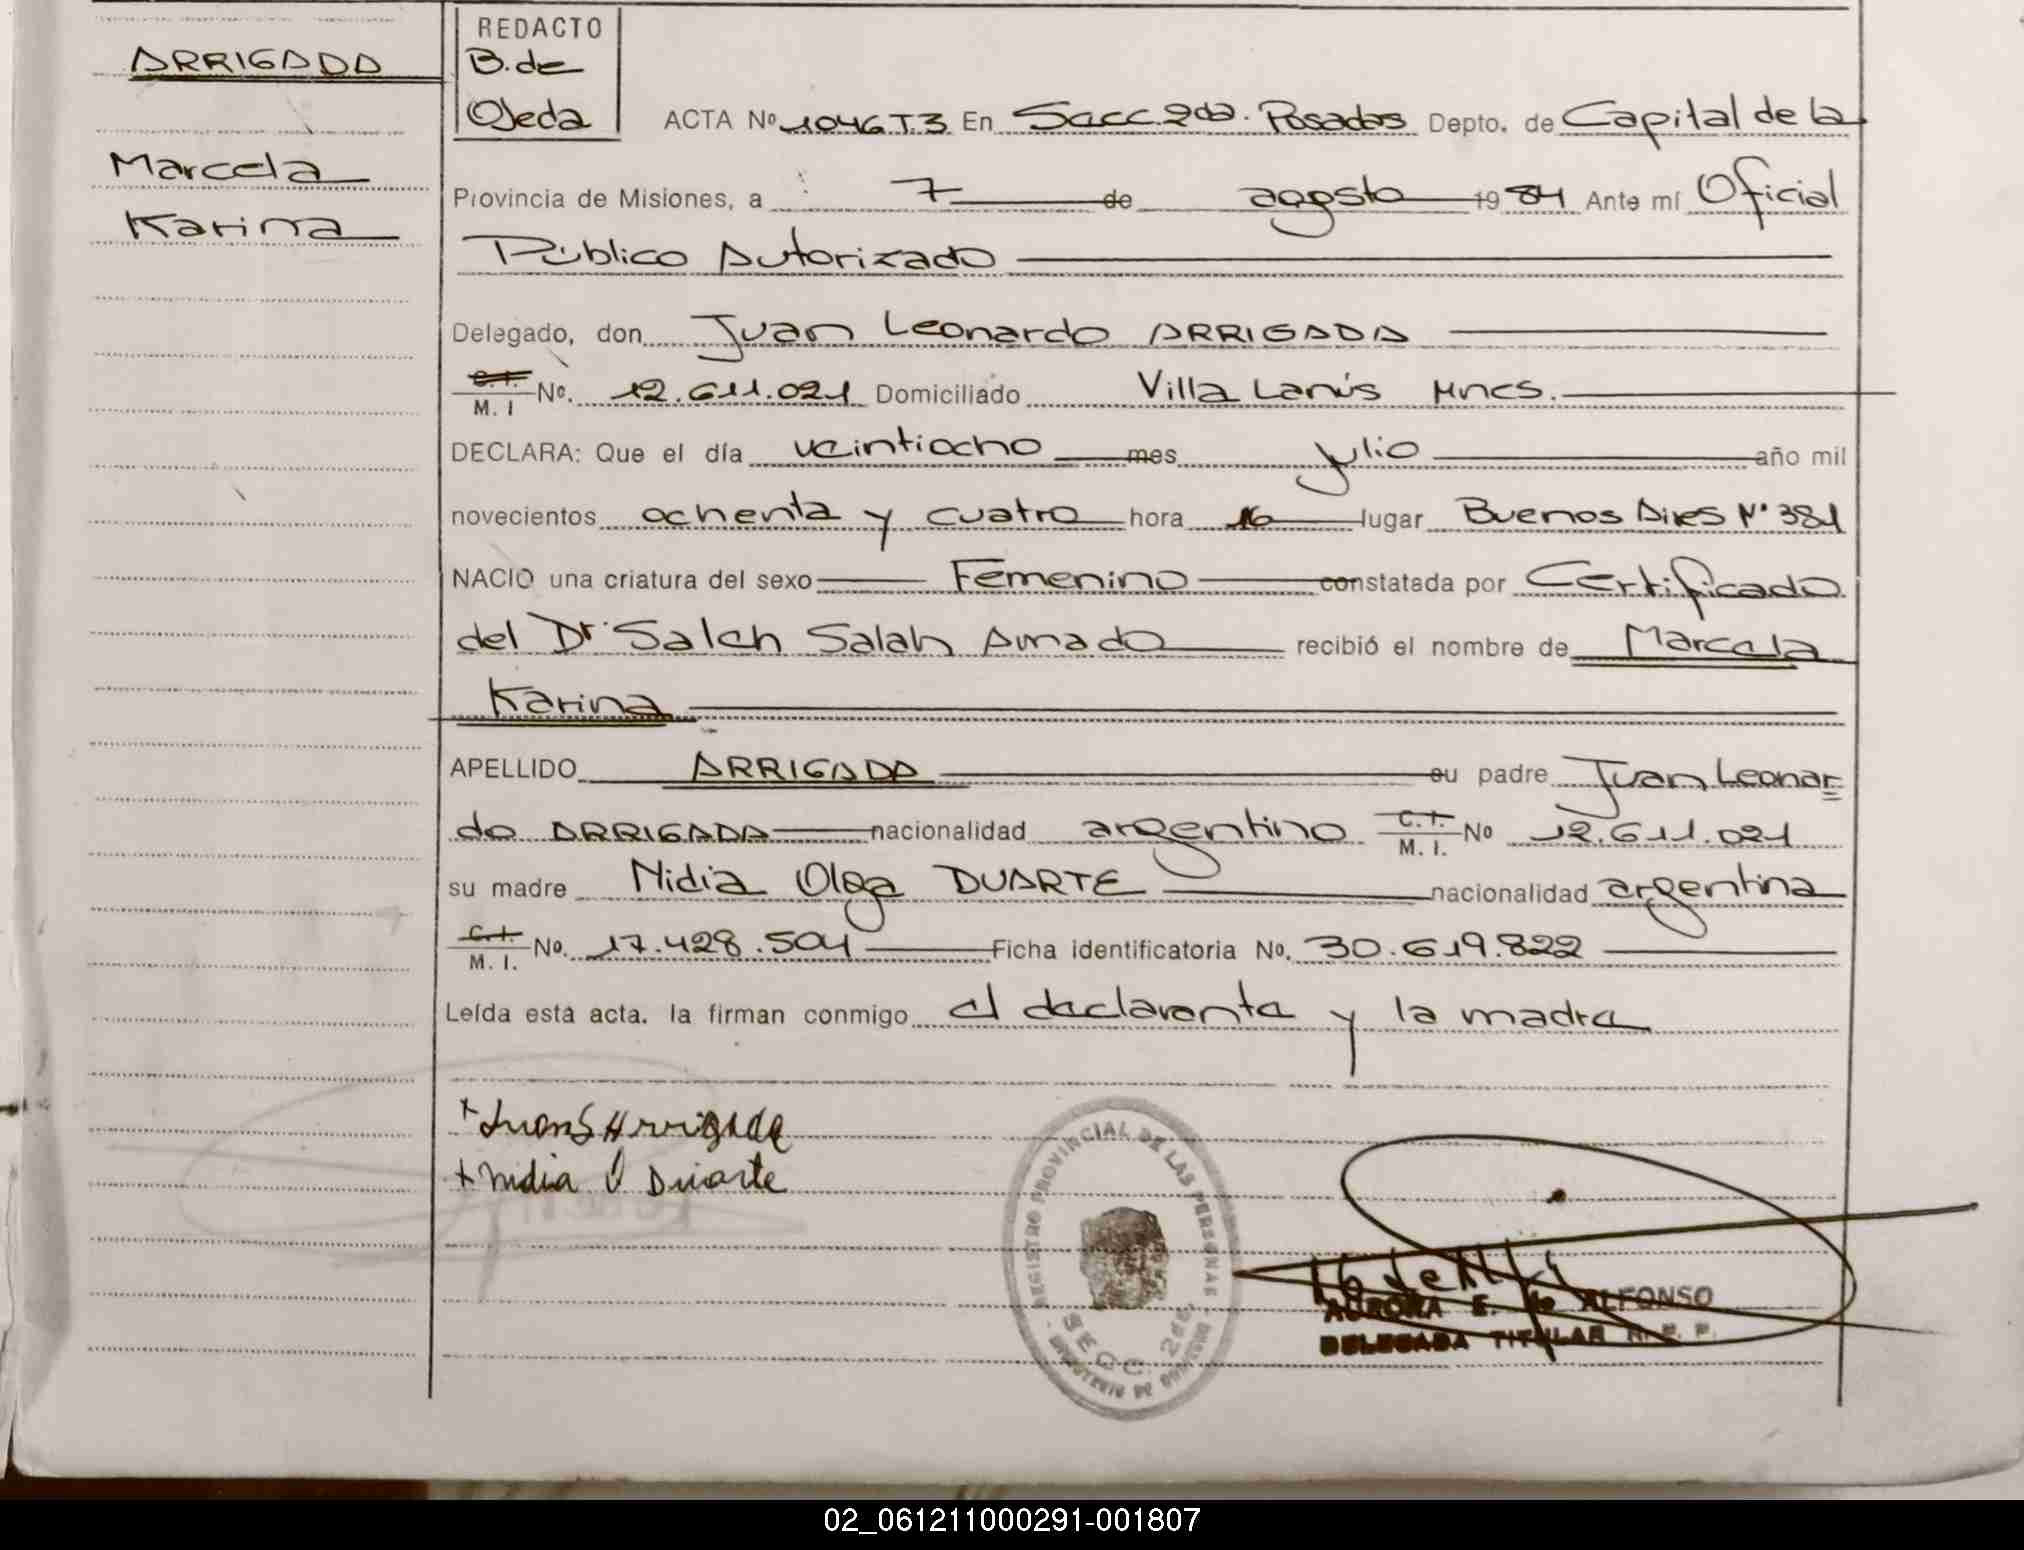 ARRIGADA
Marcela
Karina
REDACTO
B. de
Ojeda
ACTA Nº 1046 T.3 En Secc. 2da. Posadas Depto. de Capital de la
Provincia de Misiones, a 7 de agosto 1984 Ante mí Oficial
Público Autorizado
Delegado, don Juan Leonardo ARRIGADA
C.I. M. I Nº. 12.611.021 Domiciliado Villa Lanús Mnes.
DECLARA: Que el día veintiocho mes julio año mil
novecientos ochenta y cuatro hora 16 lugar Buenos Aires Nº 381
NACIO una criatura del sexo Femenino constatada por Certificado
del Dr. Saleh Salah Amado recibió el nombre de Marcela
Karina
APELLIDO ARRIGADA su padre Juan Leonar
do ARRIGADA nacionalidad argentino C.I. M. I. Nº 12.611.021
su madre Nidia Olga DUARTE nacionalidad argentina
C.I. M. I. Nº. 17.428.504 Ficha identificatoria No. 30.619.822
Leída esta acta. la firman conmigo el declarante y la madre
+ Juan Arrigada
+ Nidia O Duarte
REGISTRO PROVINCIAL DE LAS PERSONAS
SECC. 2da.
AURORA E. de ALFONSO
DELEGADA TITULAR R. P. P.
02_061211000291-001807